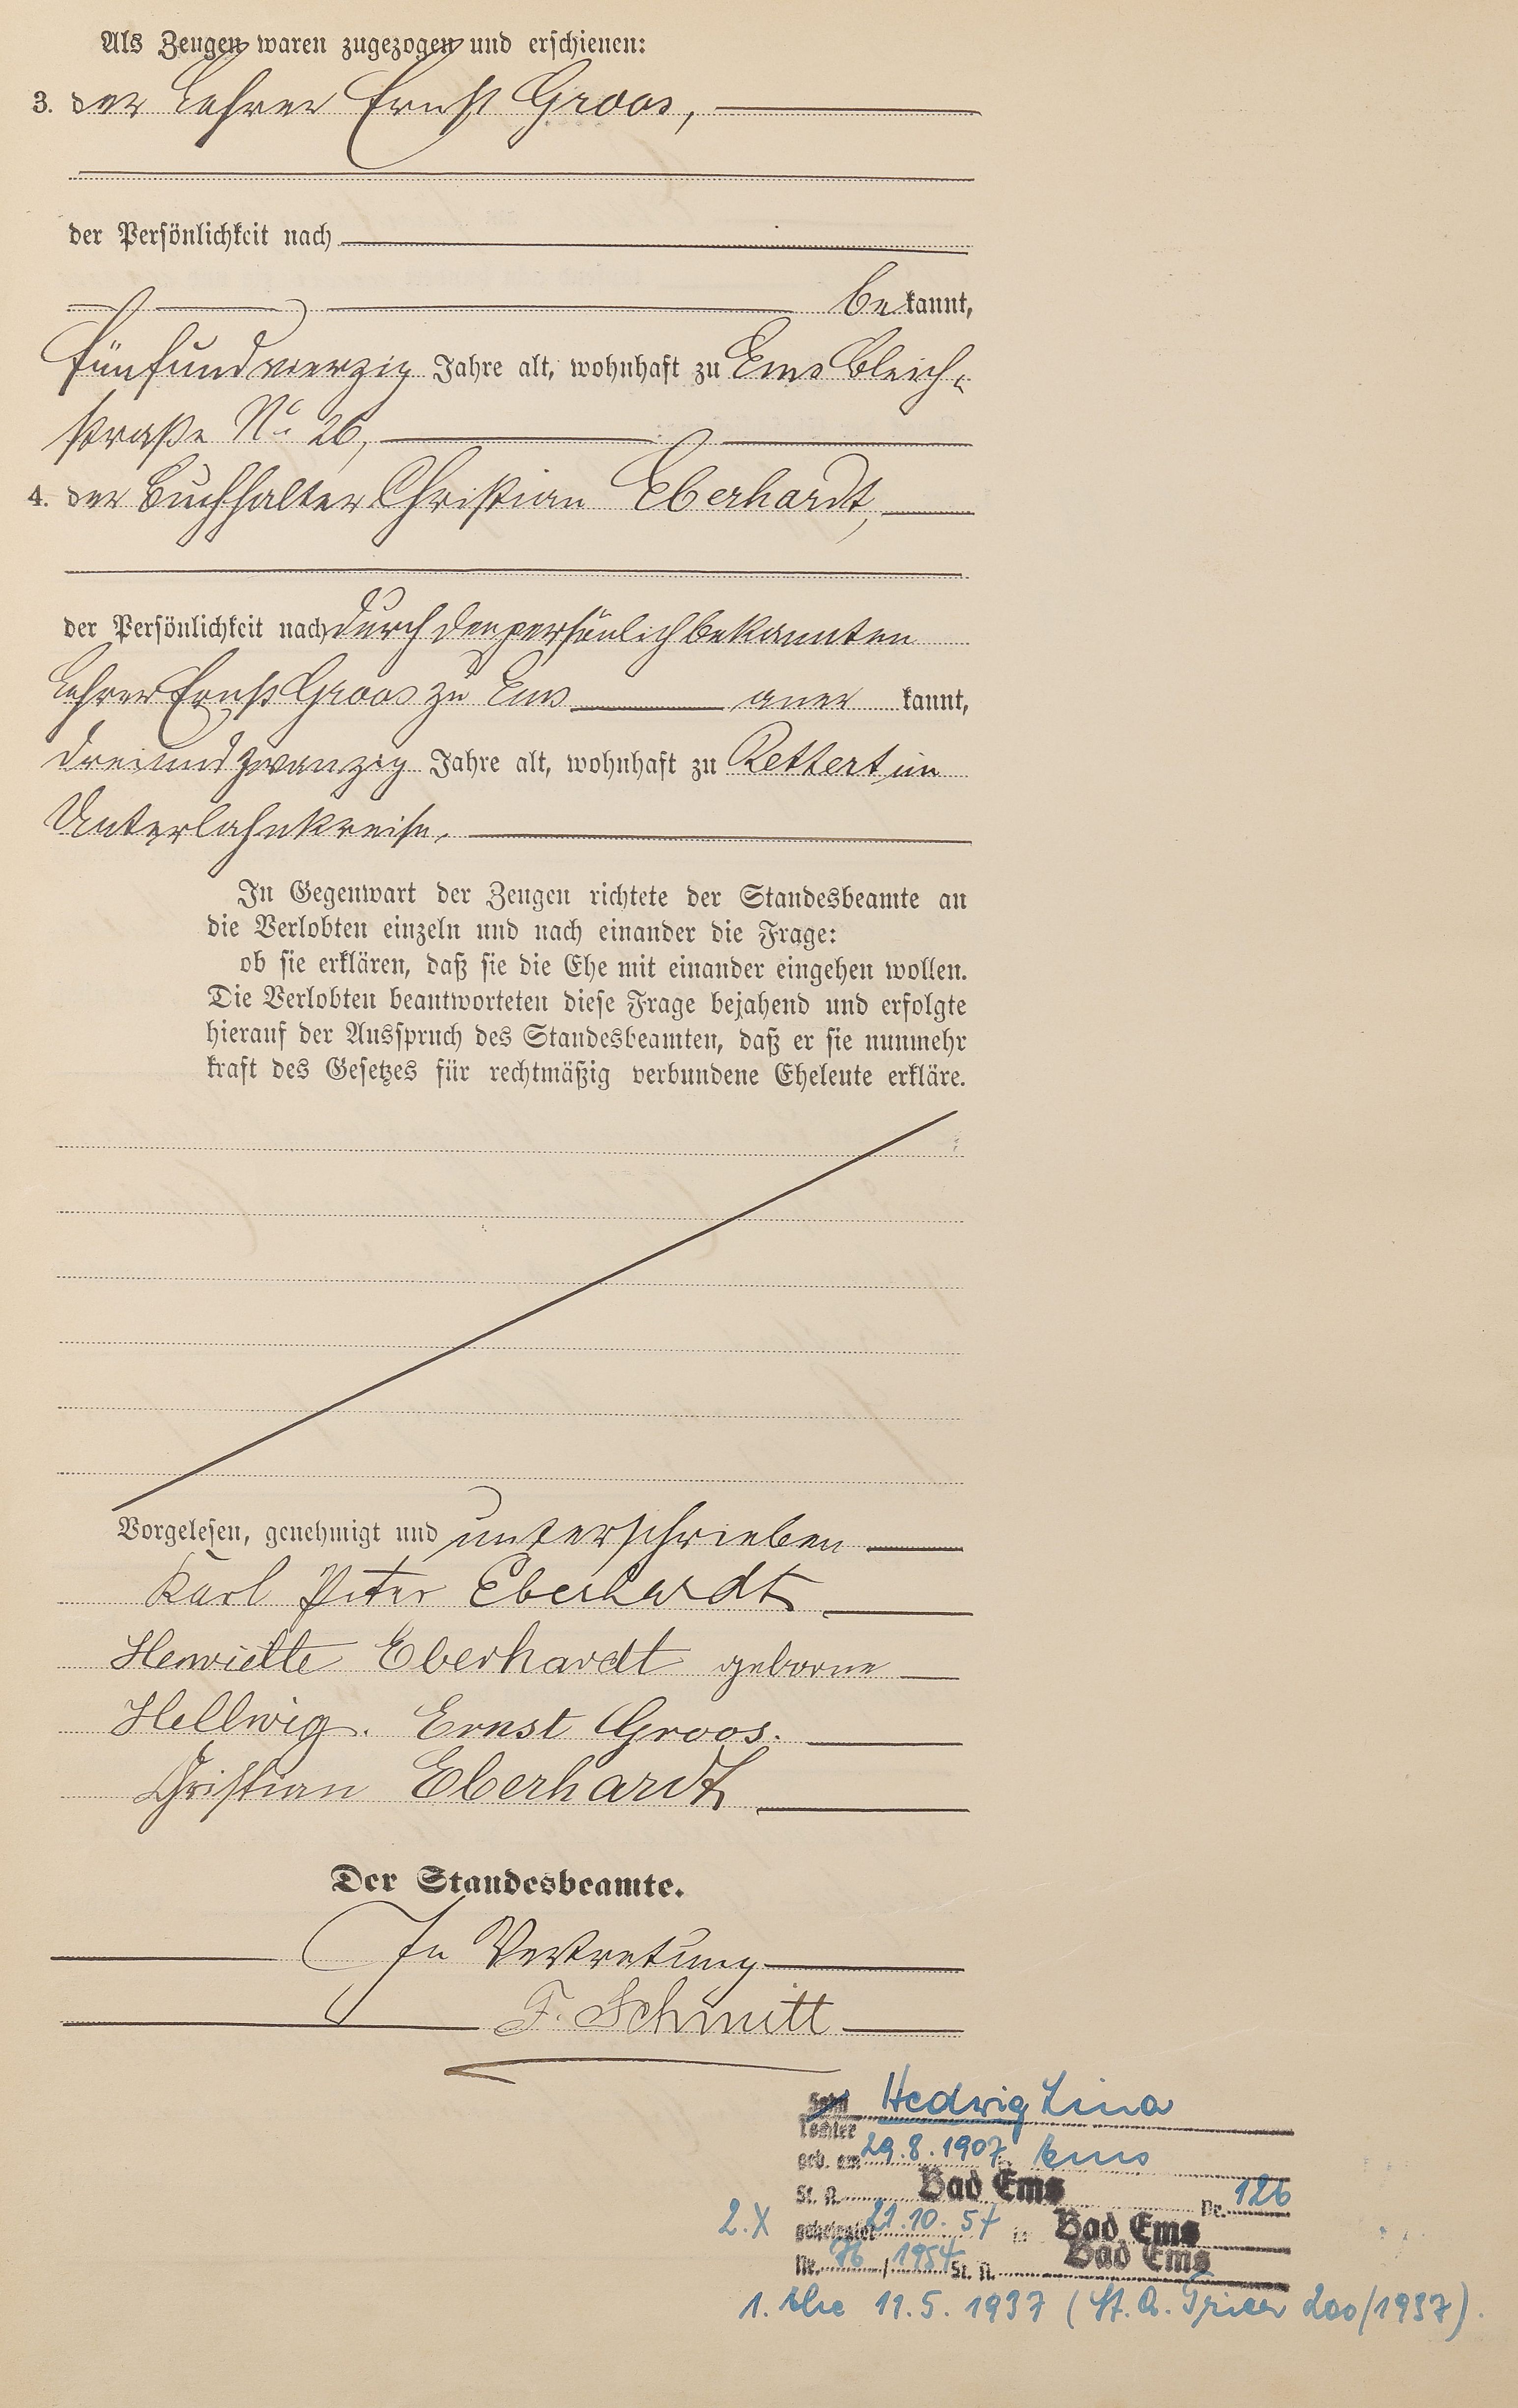 Als Zeugen waren zugezogen und erschienen:
3. der Lehrer Ernst Groos,
der Persönlichkeit nach
bekannt,
fünfundvierzig Jahre alt, wohnhaft zu Ems Bleich-
straße No. 26,
4. der Buchhalter Christian Eberhardt,
der Persönlichkeit nach durch den persönlich bekannten
Lehrer Ernst Groos zu Ems aner kannt,
dreiundzwanzig Jahre alt, wohnhaft zu Rettert im
Unterlahnkreise.
In Gegenwart der Zeugen richtete der Standesbeamte an
die Verlobten einzeln und nach einander die Frage:
ob sie erklären, daß sie die Ehe mit einander eingehen wollen.
Die Verlobten beantworteten diese Frage bejahend und erfolgte
hierauf der Ausspruch des Standesbeamten, daß er sie nunmehr
kraft des Gesetzes für rechtmäßig verbundene Eheleute erkläre.
Vorgelesen, genehmigt und unterschrieben
Karl Peter Eberhardt
Henriette Eberhardt geborne
Hellwig. Ernst Groos.
Christian Eberhardt
Der Standesbeamte.
In Vertretung
F. Schmitt
Sohn Hedwig Lina
Tochter
geb. am 29.8.1907 Ems
St. A. Bad Ems Nr. 126
2.X geheiratet 21.10.57 in Bad Ems
Nr. 76/1957 St. A. Bad Ems
1. Ehe 11.5.1937 (St. A. Trier 200/1937).